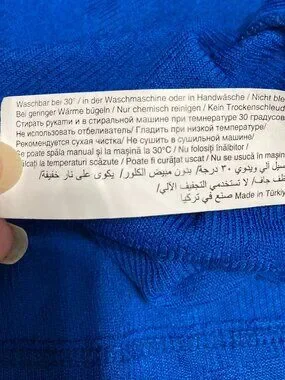 Waschbar bei 30° / in der Waschmaschine oder in Handwäsche / Nicht ble
Bei geringer Wärme bügeln / Nur chemisch reinigen / Kein Trockenschleud
Стирать руками и в стиральной машине при темнературе 30 градусов
Не использовать отбеливатель/ Гладить при низкой температуре/
Рекомендуется сухая чистка/ Не сушить в сушильной машине/
Se poate spăla manual și la mașină la 30°C / Nu folosiți înălbitor/
ălcați la temperaturi scăzute / Poate fi curățat uscat / Nu se usucă în mașin
سيل آلي ويدوي ٣٠ درجة/ بدون مبيض الكلور/ يكوى على نار خفيفة/
ظف جاف/ لا تستخدمي التجفيف الآلي/
صنع في تركيا Made in Türkiy